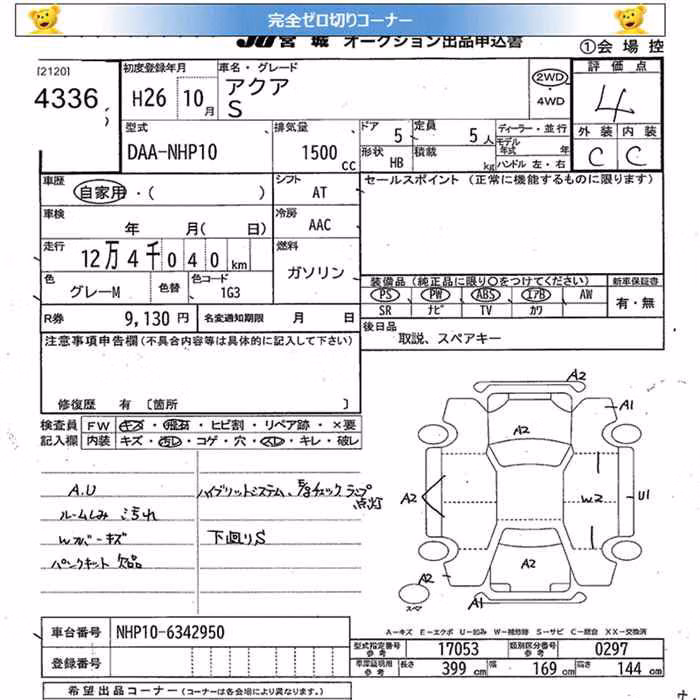 完全ゼロ切りコーナー
JU宮城 オークション出品申込書
①会場控
[2120]
4336
初度登録年月
H26 10月
車名・グレード
アクア
S
2WD
・4WD
評価点
4
外装 内装
C C
型式
DAA-NHP10
排気量
1500cc
ドア 5
定員 5人
形状 HB
積載 kg
ディーラー・並行
モデル年式 年
ハンドル 左・右
車歴
自家用・( )
シフト
AT
セールスポイント (正常に機能するものに限ります)
車検
年 月( 日)
冷房
AAC
走行
12万4千040km
燃料
ガソリン
色
グレーM
色替
色コード
1G3
装備品 (純正品に限り○をつけてください)
PS PW ABS エアB AW
SR ナビ TV カワ
新車保証書
有・無
R券 9,130円
名変通知期限 月 日
後日品
取説、スペアキー
注意事項申告欄(不具合内容等は具体的に記入して下さい)
修復歴 有 〔箇所 〕
検査員
記入欄
FW キズ・飛石・ヒビ割・リペア跡・×要
内装 キズ・汚レ・コゲ・穴・スレ・キレ・破レ
A.U
ルームしみ 汚れ
Wカバーキズ
パンクキット 欠品
ハイブリットシステム、
チェックランプ
点灯
下回りS
A2
A1
A2
A2
W2
U1
A2
A2
A1
スペア
A-キズ E-エクボ U-凹み W-補修跡 S-サビ C-腐食 XX-交換済
車台番号 NHP10-6342950
登録番号
型式指定番号 参考 17053
類別区分番号 参考 0297
車庫証明用 参考
長さ 399cm
幅 169cm
高さ 144cm
希望出品コーナー(コーナーは各会場により異なります。)